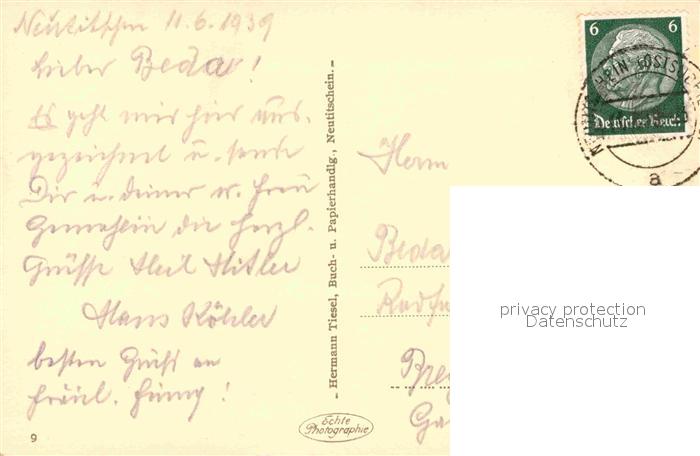 Neutitschein 11.6.1939
Lieber Beda!
Es geht mir hier aus-
gezeichnet u. sende
Dir u. deiner w. Frau
Gemahlin die herzl.
Grüsse Heil Hitler
Hans Köhler
besten Gruß an
Fräul. !
9
- Hermann Tiesel, Buch- u. Papierhandlg., Neutitschein. -
Echte
Photographie
6 6
Deutsches Reich
a
Herrn
Beda
privacy protection
Datenschutz